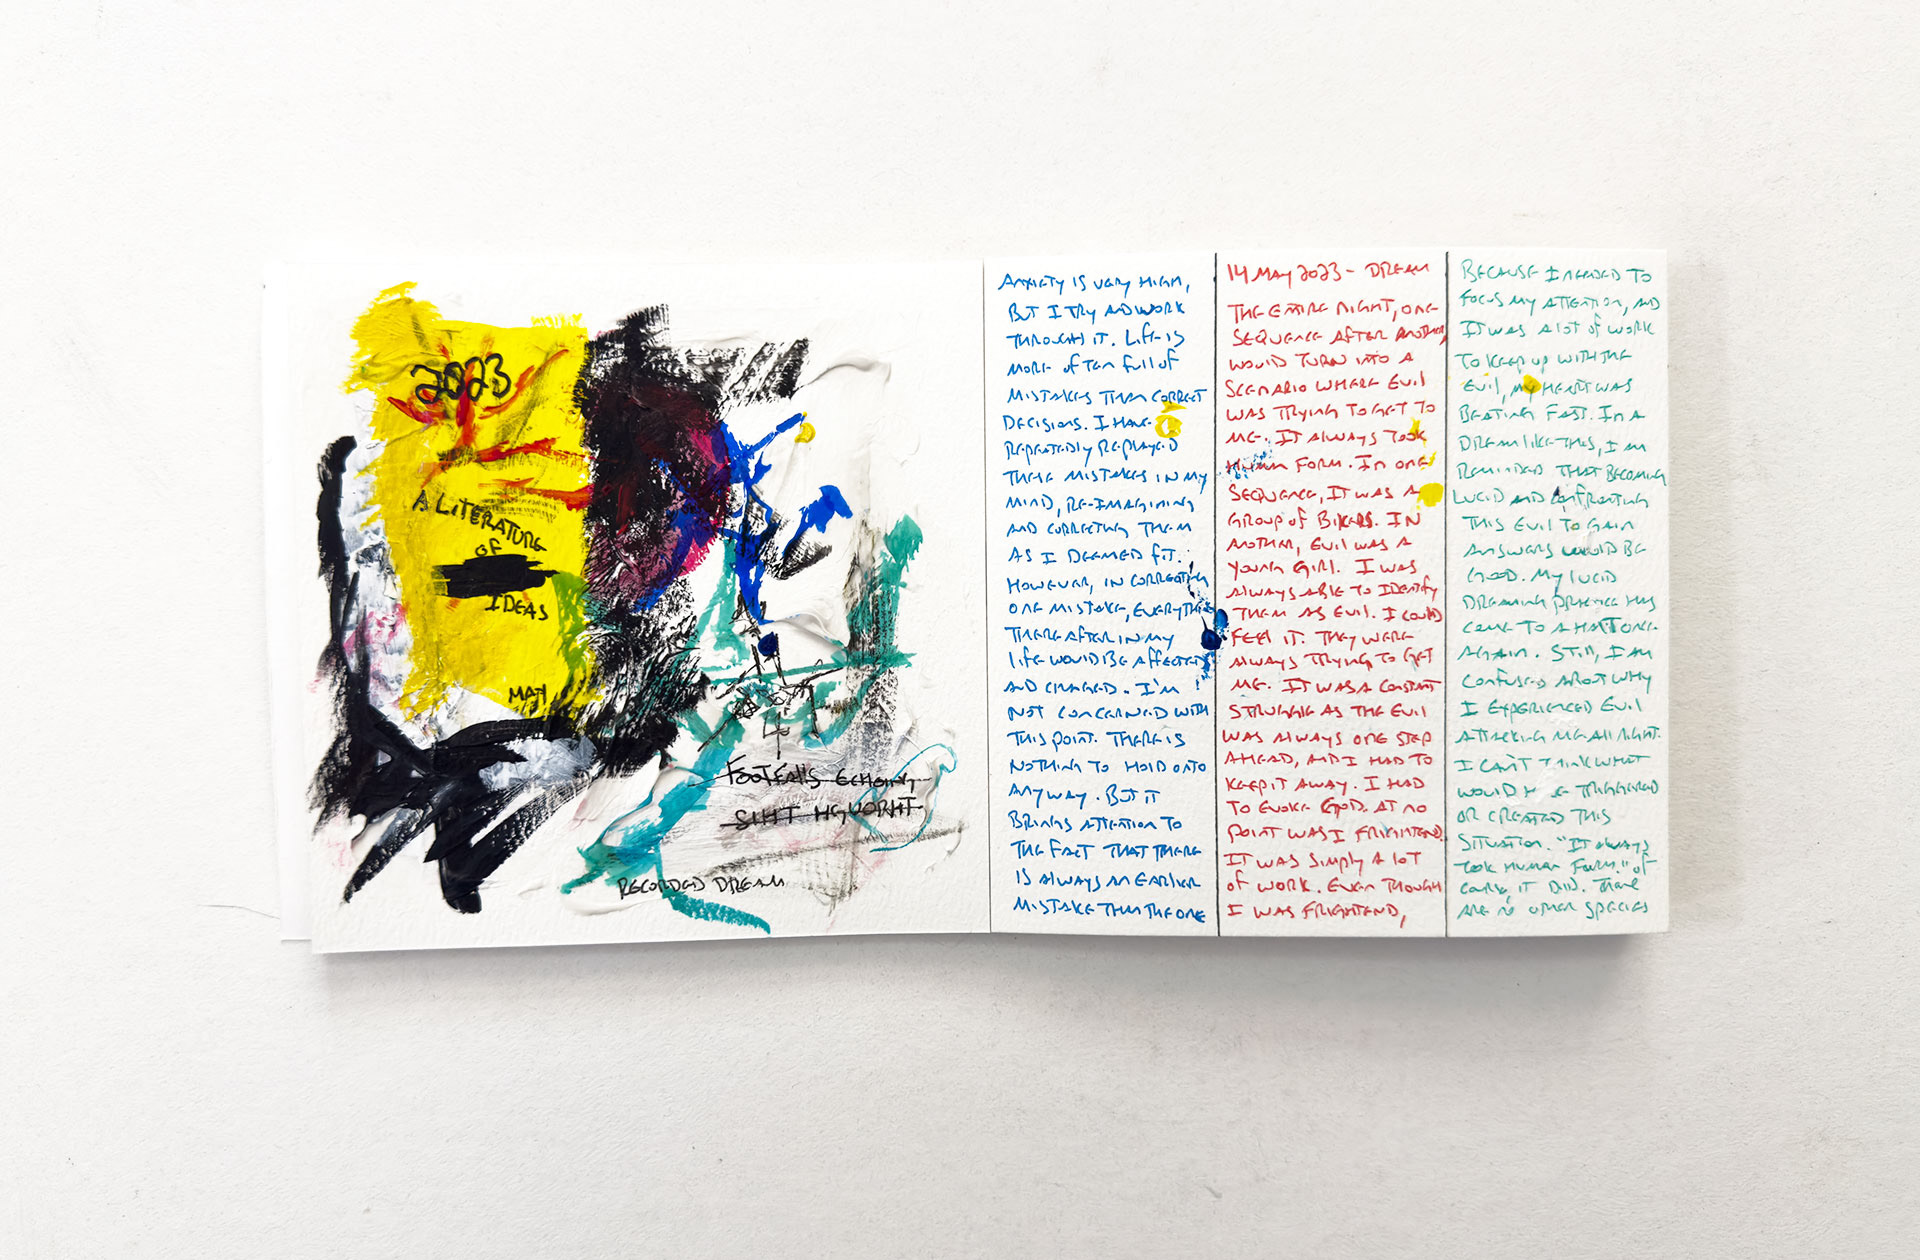 2023
A LITERATURE
OF
IDEAS
MAY
ECHOING
RECORDED DREAM
ANXIETY IS VERY HIGH,
BUT I TRY AND WORK
THROUGH IT. LIFE IS
MORE OFTEN FULL OF
MISTAKES THAN CORRECT
DECISIONS. I HAVE
REPEATEDLY REPLAYED
THESE MISTAKES IN MY
MIND, RE-IMAGINING
AND CORRECTING THEM
AS I DEEMED FIT.
HOWEVER, IN CORRECTING
ONE MISTAKE, EVERYTHING
THEREAFTER IN MY
LIFE WOULD BE AFFECTED
AND CHANGED. I'M
NOT CONCERNED WITH
THIS POINT. THERE IS
NOTHING TO HOLD ONTO
ANYWAY. BUT IT
BRINGS ATTENTION TO
THE FACT THAT THERE
IS ALWAYS AN EARLIER
MISTAKE THAN THE ONE
14 MAY 2023 - DREAM
THE ENTIRE NIGHT, ONE
SEQUENCE AFTER ANOTHER,
WOULD TURN INTO A
SCENARIO WHERE EVIL
WAS TRYING TO GET TO
ME. IT ALWAYS TOOK
HUMAN FORM. IN ONE
SEQUENCE, IT WAS A
GROUP OF BIKERS. IN
ANOTHER, EVIL WAS A
YOUNG GIRL. I WAS
ALWAYS ABLE TO IDENTIFY
THEM AS EVIL. I COULD
FEEL IT. THEY WERE
ALWAYS TRYING TO GET
ME. IT WAS A CONSTANT
STRUGGLE AS THE EVIL
WAS ALWAYS ONE STEP
AHEAD, AND I HAD TO
KEEP IT AWAY. I HAD
TO EVOKE GOD. AT NO
POINT WAS I FRIGHTEND.
IT WAS SIMPLY A LOT
OF WORK. EVEN THOUGH
I WAS FRIGHTEND,
BECAUSE I NEEDED TO
FOCUS MY ATTENTION, AND
IT WAS A LOT OF WORK
TO KEEP UP WITH THE
EVIL, MY HEART WAS
BEATING FAST. IN A
DREAM LIKE THIS, I AM
REMINDED THAT BECOMING
LUCID AND CONFRONTING
THIS EVIL TO GAIN
ANSWERS WOULD BE
GOOD. MY LUCID
DREAMING PRACTICE HAS
COME TO A HALT ONCE
AGAIN. STILL, I AM
CONFUSED ABOUT WHY
I EXPERIENCED EVIL
ATTACKING ME ALL NIGHT.
I CAN'T THINK WHAT
WOULD HAVE TRIGGERED
OR CREATED THIS
SITUATION. "IT ALWAYS
TOOK HUMAN FORM." OF
COURSE IT DID. THERE
ARE NO OTHER SPECIES